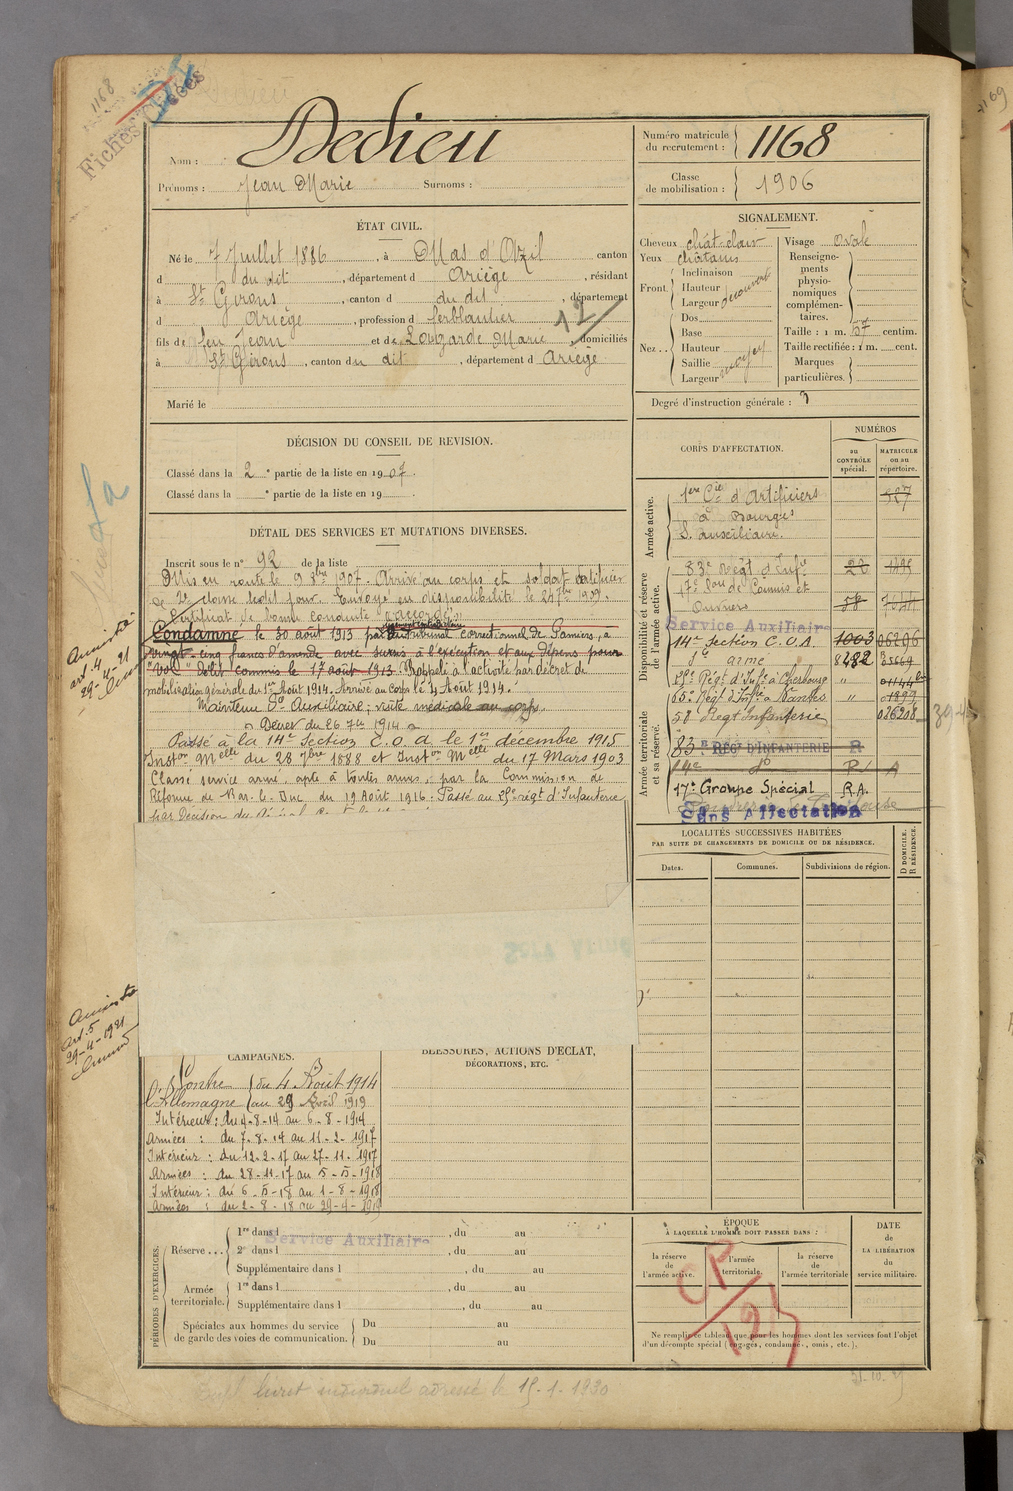 1168
Fiches Créées
Nom : Dedieu
Prénoms : Jean Marie Surnoms :
Numéro matricule du recrutement : 1168
Classe de mobilisation : 1906
ÉTAT CIVIL.
Né le 7 Juillet 1886, à Mas d'Azil canton
d du dit, département d Ariège, résidant
à St Girons, canton d du dit, département
d Ariège, profession d ferblantier
12
fils de feu Jean et de Lougarde Marie, domiciliés
à St Girons, canton du dit, département d Ariège
Marié le
SIGNALEMENT.
Cheveux chât-clair
Yeux châtains
Front. Inclinaison
Hauteur
Largeur découvert
Nez.. Dos
Base
Hauteur
Saillie
Largeur moyen
Visage Ovale
Renseignements physionomiques complémentaires.
Taille : 1 m. 57 centim.
Taille rectifiée : 1 m. cent.
Marques particulières.
Degré d'instruction générale : 3
DÉCISION DU CONSEIL DE REVISION.
Classé dans la 2e partie de la liste en 1907.
Classé dans la e partie de la liste en 19
DÉTAIL DES SERVICES ET MUTATIONS DIVERSES.
Inscrit sous le n° 92 de la liste
Mis en route le 9 8bre 1907. Arrivé au corps et soldat d'artificier
de 2e classe ledit jour. Envoyé en disponibilité le 24 7bre 1909.
Certificat de bonne conduite "accordé".
Condamné le 30 août 1913 par le tribunal correctionnel de Pamiers, à
vingt-cinq francs d'amende avec sursis à l'exécution et aux dépens pour
"vol" délit commis le 17 août 1913. Rappelé à l'activité par décret de
mobilisation générale du 1er Août 1914. Arrivé au corps le 4 Août 1914.
Maintenu Sce Auxiliaire; visite médicale au corps.
Décret du 26 7bre 1914
Passé à la 14e Section C.O.A. le 1er décembre 1915
Inston Melle du 28 7bre 1888 et Inston Melle du 17 Mars 1903
Classé service armé, apte à toutes armes, par la Commission de
Réforme de Bar-le-Duc du 19 Août 1916. Passé au 25e régt d'Infanterie
Amnistié
art. 4
29-4-21
Amnistié
art. 5
29-4-1921
CORPS D'AFFECTATION.
NUMÉROS
au CONTRÔLE spécial.
MATRICULE ou au répertoire.
Armée active.
1ère Cie d'Artificiers 527
à Bourges
S. auxiliaire.
Disponibilité et réserve de l'armée active.
83e Régt d'Infie 22
17e Son de Commis et
Ouvriers 58
Service Auxiliaire
14e Section C.O.A. 1003 06206
Sce armé 8482
25e Régt d'Infie à Cherbourg "
65e Régt d'Infie à Nantes " 01899
Armée territoriale et sa réserve.
58e Régt Infanterie 026208
83e RÉGT D'INFANTERIE R
14e do R. A
17e Groupe Spécial R.A.
Sans Affectation
LOCALITÉS SUCCESSIVES HABITÉES
PAR SUITE DE CHANGEMENTS DE DOMICILE OU DE RÉSIDENCE.
Dates. Communes. Subdivisions de région. D DOMICILE. R RÉSIDENCE.
CAMPAGNES.
Contre l'Allemagne du 4 Août 1914
au 29 Avril 1919
Intérieur : du 4-8-14 au 6-8-1914
Armées : du 7-8-14 au 11-2-1917
Intérieur : du 12-2-17 au 27-11-1917
Armées : du 28-11-17 au 5-5-1918
Intérieur : du 6-5-18 au 1-8-1918
Armées : du 2-8-18 au 29-4-1919
BLESSURES, ACTIONS D'ÉCLAT,
DÉCORATIONS, ETC.
PÉRIODES D'EXERCICES.
Réserve... 1re dans l , du au
Service Auxiliaire
2e dans l , du au
Supplémentaire dans l , du au
Armée territoriale. 1re dans l , du au
Supplémentaire dans l , du au
Spéciales aux hommes du service de garde des voies de communication. Du au
Du au
ÉPOQUE
À LAQUELLE L'HOMME DOIT PASSER DANS :
la réserve de l'armée active.
l'armée territoriale.
la réserve de l'armée territoriale
DATE de LA LIBÉRATION du service militaire.
CP
Ne remplir ce tableau que pour les hommes dont les services font l'objet
d'un décompte spécial (engagés, condamnés, omis, etc.).
livret individuel adressé le 15-1-1930